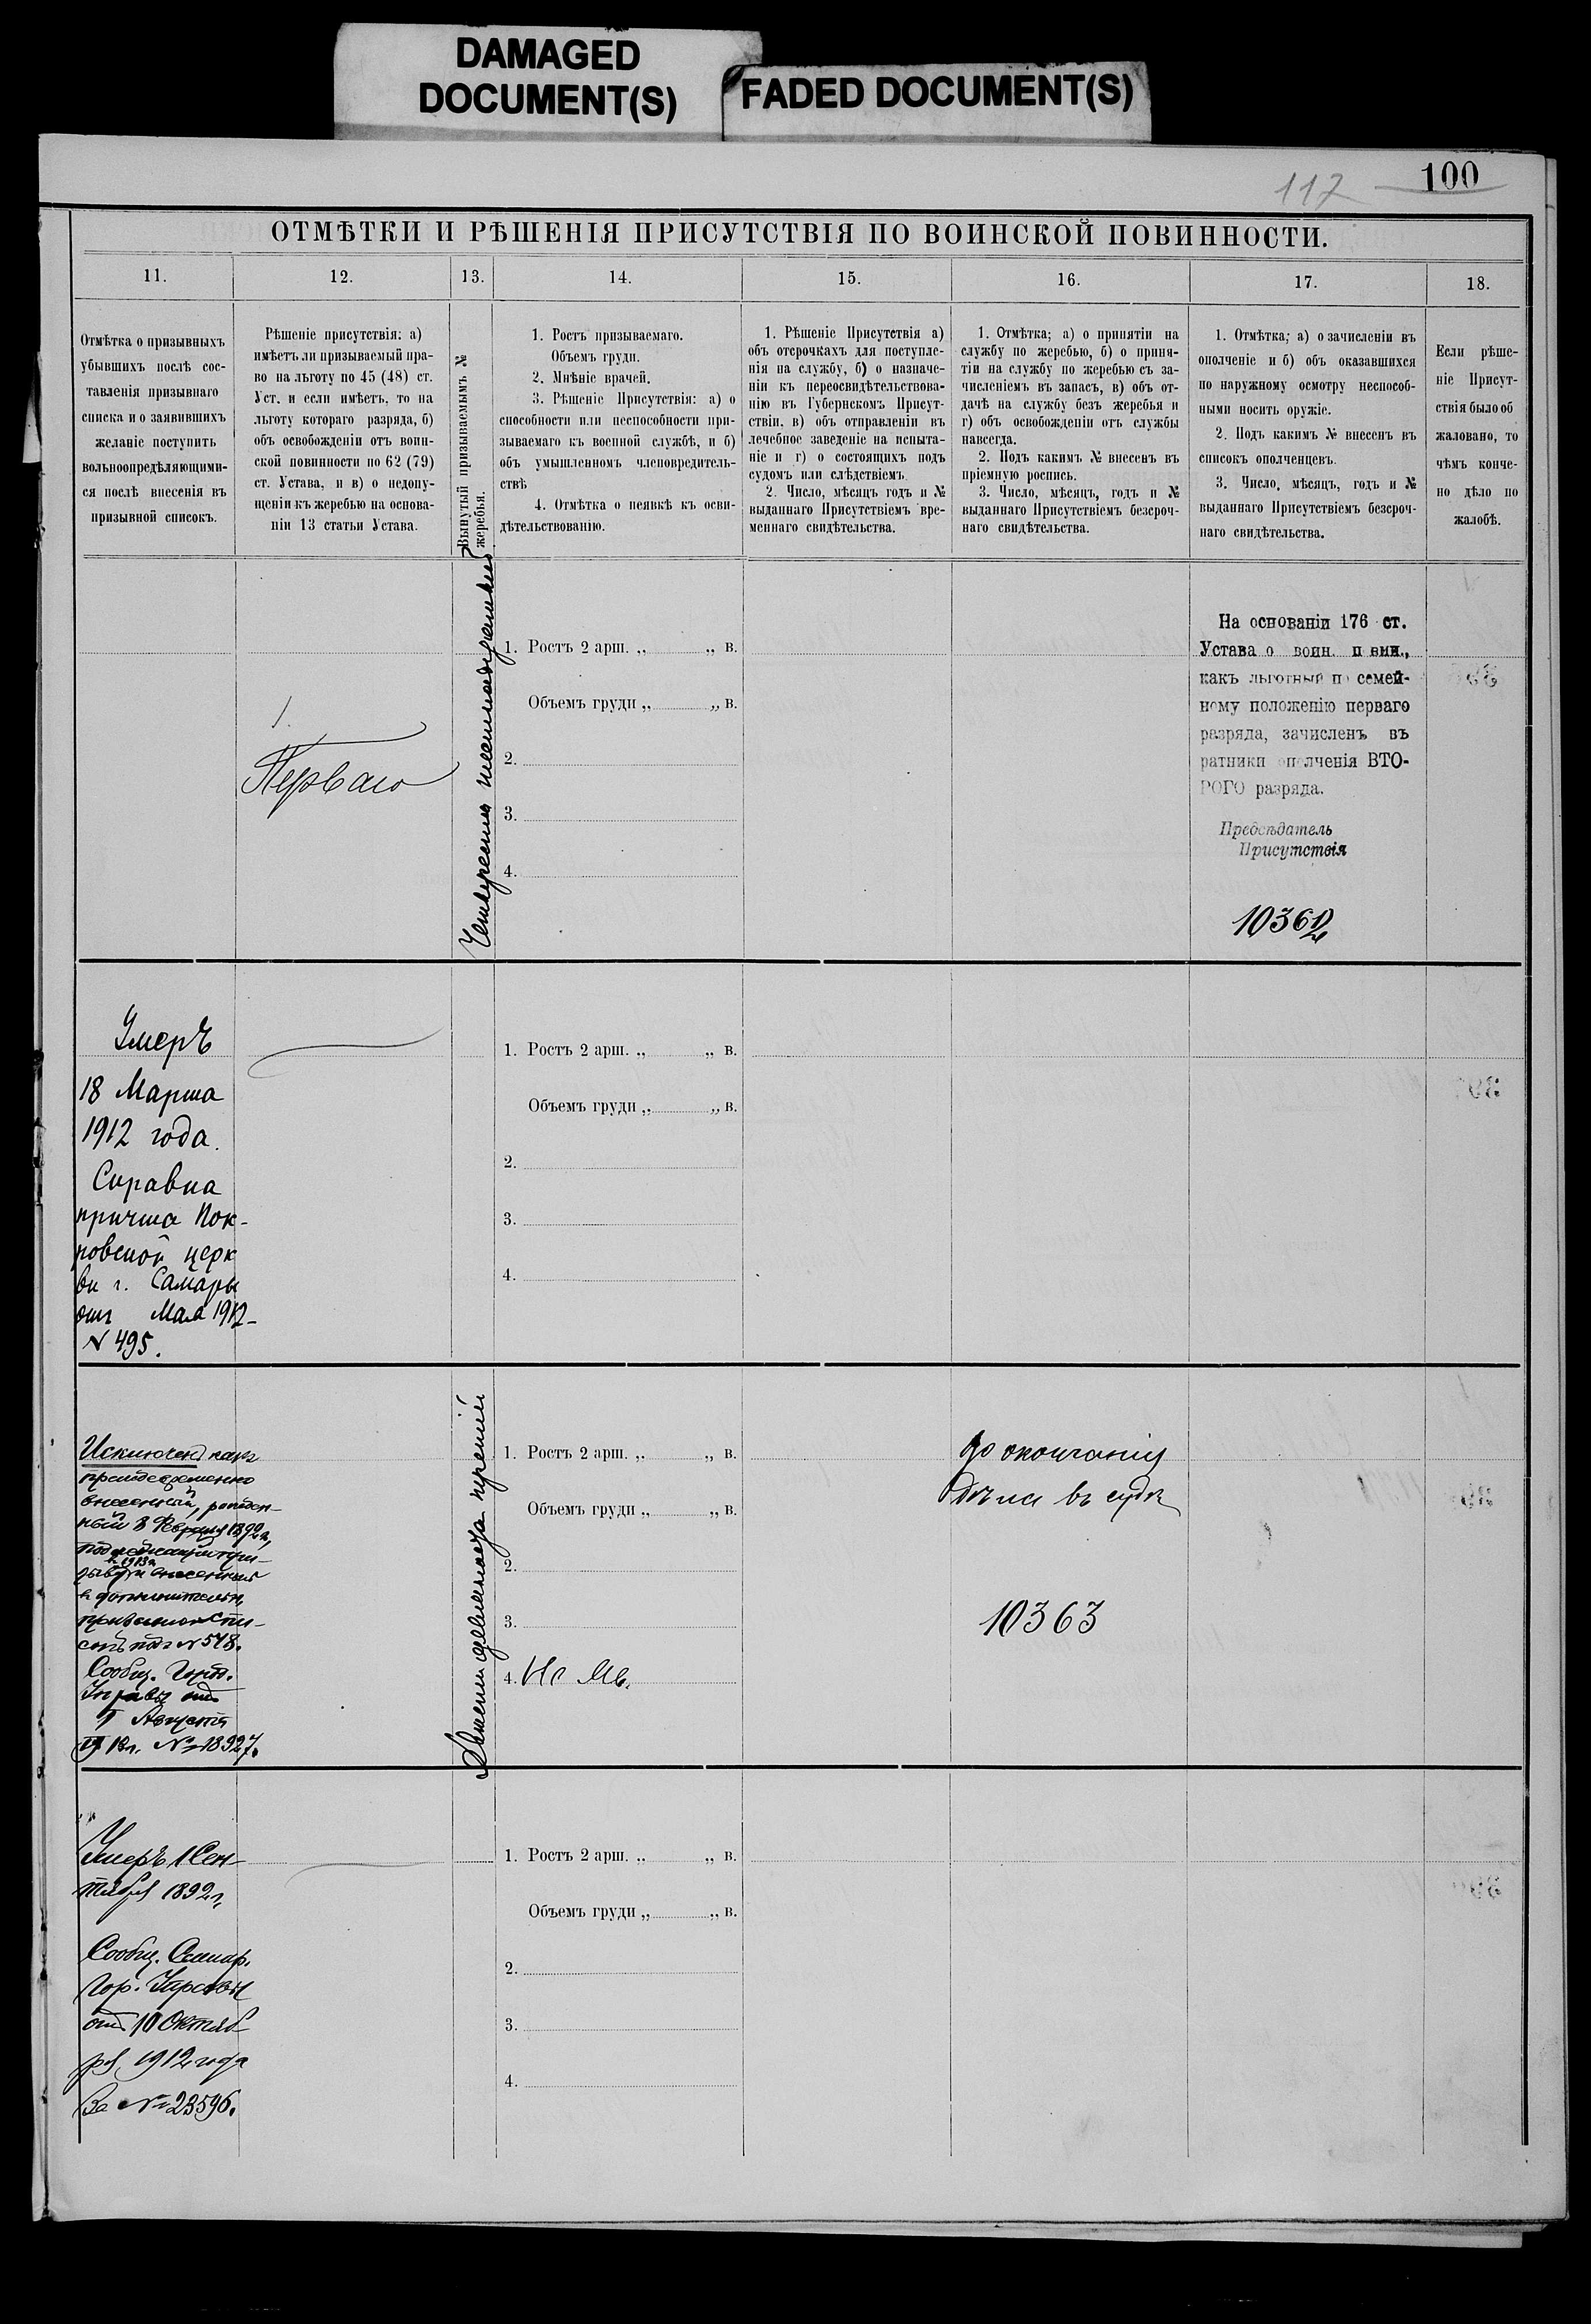 DAMAGED
DOCUMENT(S)
FADED DOCUMENT(S)
117
100
ОТМѢТКИ И РѢШЕНІЯ ПРИСУТСТВІЯ ПО ВОИНСКОЙ ПОВИННОСТИ.
11.
12.
13.
14.
15.
16.
17.
18.
Отмѣтка о призывныхъ
убывшихъ послѣ сос-
тавленія призывнаго
списка и о заявившихъ
желаніе поступить
вольноопредѣляющими-
ся послѣ внесенія въ
призывной списокъ.
Рѣшеніе присутствія: а)
имѣетъ ли призываемый пра-
во на льготу по 45 (48) ст.
Уст. и если имѣетъ, то на
льготу котораго разряда, б)
объ освобожденіи отъ воин-
ской повинности по 62 (79)
ст. Устава, и в) о недопу-
щеніи къ жеребью на основа-
ніи 13 статьи Устава.
Вынутый призываемымъ №
жеребья.
1. Ростъ призываемаго.
Объемъ груди.
2. Мнѣніе врачей.
3. Рѣшеніе Присутствія: а) о
способности или неспособности при-
зываемаго къ военной службѣ, и б)
объ умышленномъ членовредитель-
ствѣ
4. Отмѣтка о неявкѣ къ осви-
дѣтельствованію.
1. Рѣшеніе Присутствія а)
объ отсрочкахъ для поступле-
нія на службу, б) о назначе-
ніи къ переосвидѣтельствова-
нію въ Губернскомъ Присут-
ствіи. в) объ отправленіи въ
лечебное заведеніе на испыта-
ніе и г) о состоящихъ подъ
судомъ или слѣдствіемъ
2. Число, мѣсяцъ годъ и №
выданнаго Присутствіемъ вре-
меннаго свидѣтельства.
1. Отмѣтка; а) о принятіи на
службу по жеребью, б) о приня-
тіи на службу по жеребью съ за-
численіемъ въ запасъ, в) объ от-
дачѣ на службу безъ жеребья и
г) объ освобожденіи отъ службы
навсегда.
2. Подъ какимъ № внесенъ въ
пріемную роспись.
3. Число, мѣсяцъ, годъ и №
выданнаго Присутствіемъ безсроч-
наго свидѣтельства.
1. Отмѣтка; а) о зачисленіи въ
ополченіе и б) объ оказавшихся
по наружному осмотру неспособ-
ными носить оружіе.
2. Подъ какимъ № внесенъ въ
списокъ ополченцевъ.
3. Число, мѣсяцъ, годъ и №
выданнаго Присутствіемъ безсроч-
наго свидѣтельства.
Если рѣше-
ніе Присут-
ствія было об
жаловано, то
чѣмъ конче-
но дѣло по
жалобѣ.
1.
Перваго
Четыреста шестнадцатый
1. Ростъ 2 арш. „ „ в.
Объемъ груди „ „ в.
2.
3.
4.
На основаніи 176 ст.
Устава о воин. п вин.,
какъ льготный п семей-
ному положенію перваго
разряда, зачисленъ въ
ратники ополченія ВТО-
РОГО разряда.
Предсѣдатель
Присутствія
10362
Умеръ
18 Марта
1912 года.
Справка
причта Пок-
ровской церк
ви г. Самары
отъ Мая 1912
N 495.
1. Ростъ 2 арш. „ „ в.
Объемъ груди „ „ в.
2.
3.
4.
Исключенъ какъ
преждевременно
внесенный, рожден-
ный 3 Февраля 1892 г.,
въ 1913 г.
внесенный
въ дополнительн.
спи-
сокъ подъ N 548.
Сообщ. Город.
Управы отъ
Августа
№ 18927.
третій
1. Ростъ 2 арш. „ „ в.
Объемъ груди „ „ в.
2.
3.
4. Не яв.
до окончанія
дѣла въ судѣ
10363
Умеръ 1 Сен-
тября 1892 г.
Сообщ. Самар.
Гор. Управы
отъ 10 Октяб
ря 1912 года
За № 23596.
1. Ростъ 2 арш. „ „ в.
Объемъ груди „ „ в.
2.
3.
4.